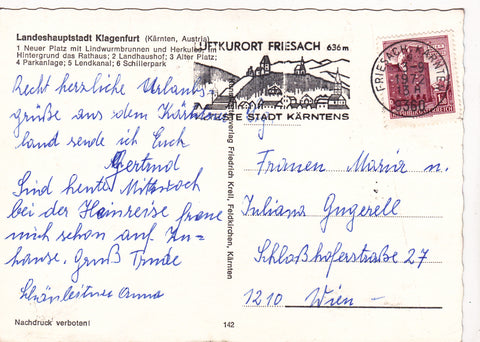 Landeshauptstadt Klagenfurt (Kärnten, Austria)
1 Neuer Platz mit Lindwurmbrunnen und Herkules, im
Hintergrund das Rathaus; 2 Landhaushof; 3 Alter Platz;
4 Parkanlage; 5 Lendkanal; 6 Schillerpark
LUFTKURORT FRIESACH 636 m
TE STADT KÄRNTENS
FRIESACH, KÄRNTEN
1972
9360
Recht herzliche Urlaubs-
grüße aus dem Kärntner
land sende ich Euch
Gertrud
Sind heute Mittwoch
bei der Heimreise freue
mich schon auf Zu-
hause. Gruß Trude
Schönleitner Anna
Nachdruck verboten!
142
verlag Friedrich Kreil, Feldkirchen, Kärnten
Frauen Maria u.
Juliana Gugerell
Schloßhoferstraße 27
1210 Wien -